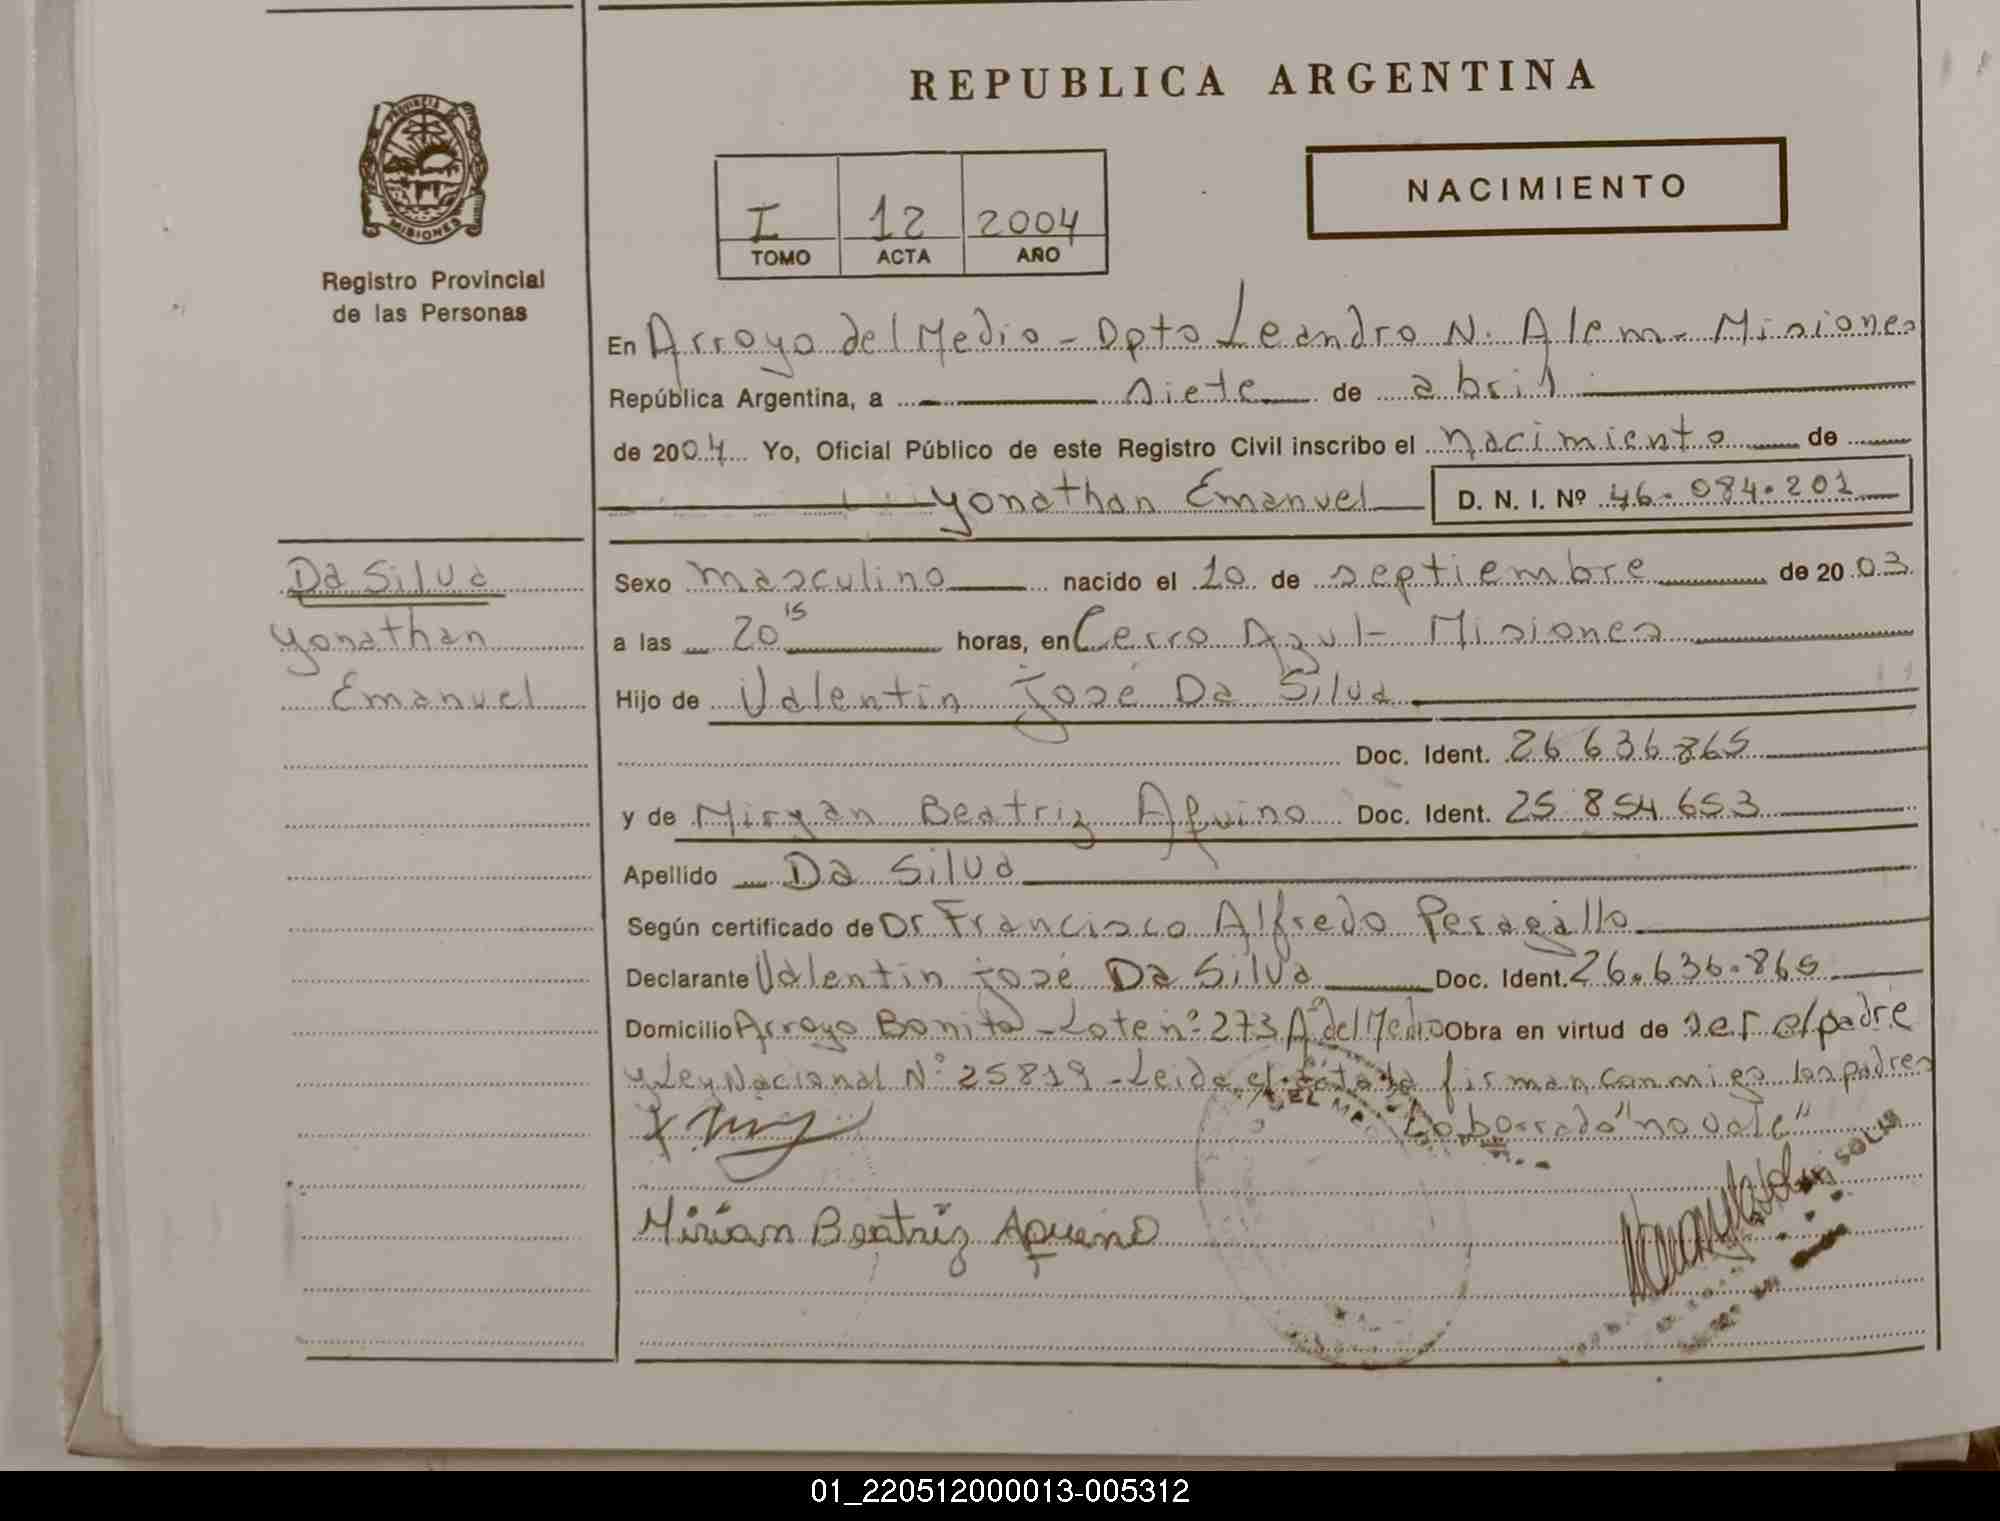 REPUBLICA ARGENTINA
PROVINCIA
MISIONES
Registro Provincial
de las Personas
NACIMIENTO
I 12 2004
TOMO ACTA AÑO
En Arroyo del Medio - Dpto Leandro N. Alem - Misiones
República Argentina, a siete de abril
de 2004 Yo, Oficial Público de este Registro Civil inscribo el nacimiento de
yonathan Emanuel D. N. I. Nº 46.084.201
Da Silva
yonathan
Emanuel
Sexo masculino nacido el 10 de septiembre de 2003
a las 20 15 horas, en Cerro Azul - Misiones
Hijo de Valentín José Da Silva
Doc. Ident. 26.636.865
y de Miryan Beatriz Aquino Doc. Ident. 25.854.653
Apellido Da Silva
Según certificado de Dr Francisco Alfredo Peragallo
Declarante Valentín José Da Silva Doc. Ident. 26.636.865
Domicilio Arroyo Bonito - Lote nº 273 Aº del Medio Obra en virtud de ser el padre
y Ley Nacional Nº 25819 - Leida el acta la firman conmigo los padres
Lo borrado "no vale"
Mirian Beatriz Aquino
SOLIS
01_220512000013-005312